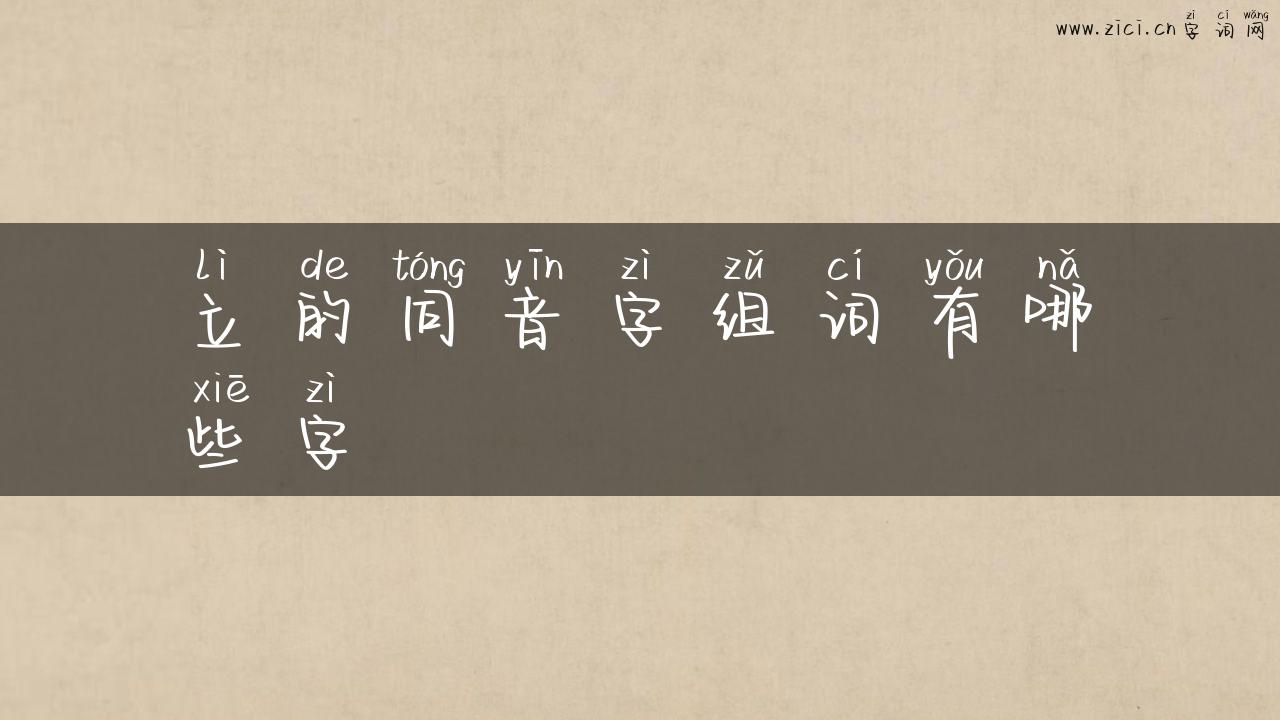 zì cí wǎng
www.zici.cn 字词网
lì de tóng yīn zì zǔ cí yǒu nǎ
立的同音字组词有哪
xiē zì
些字